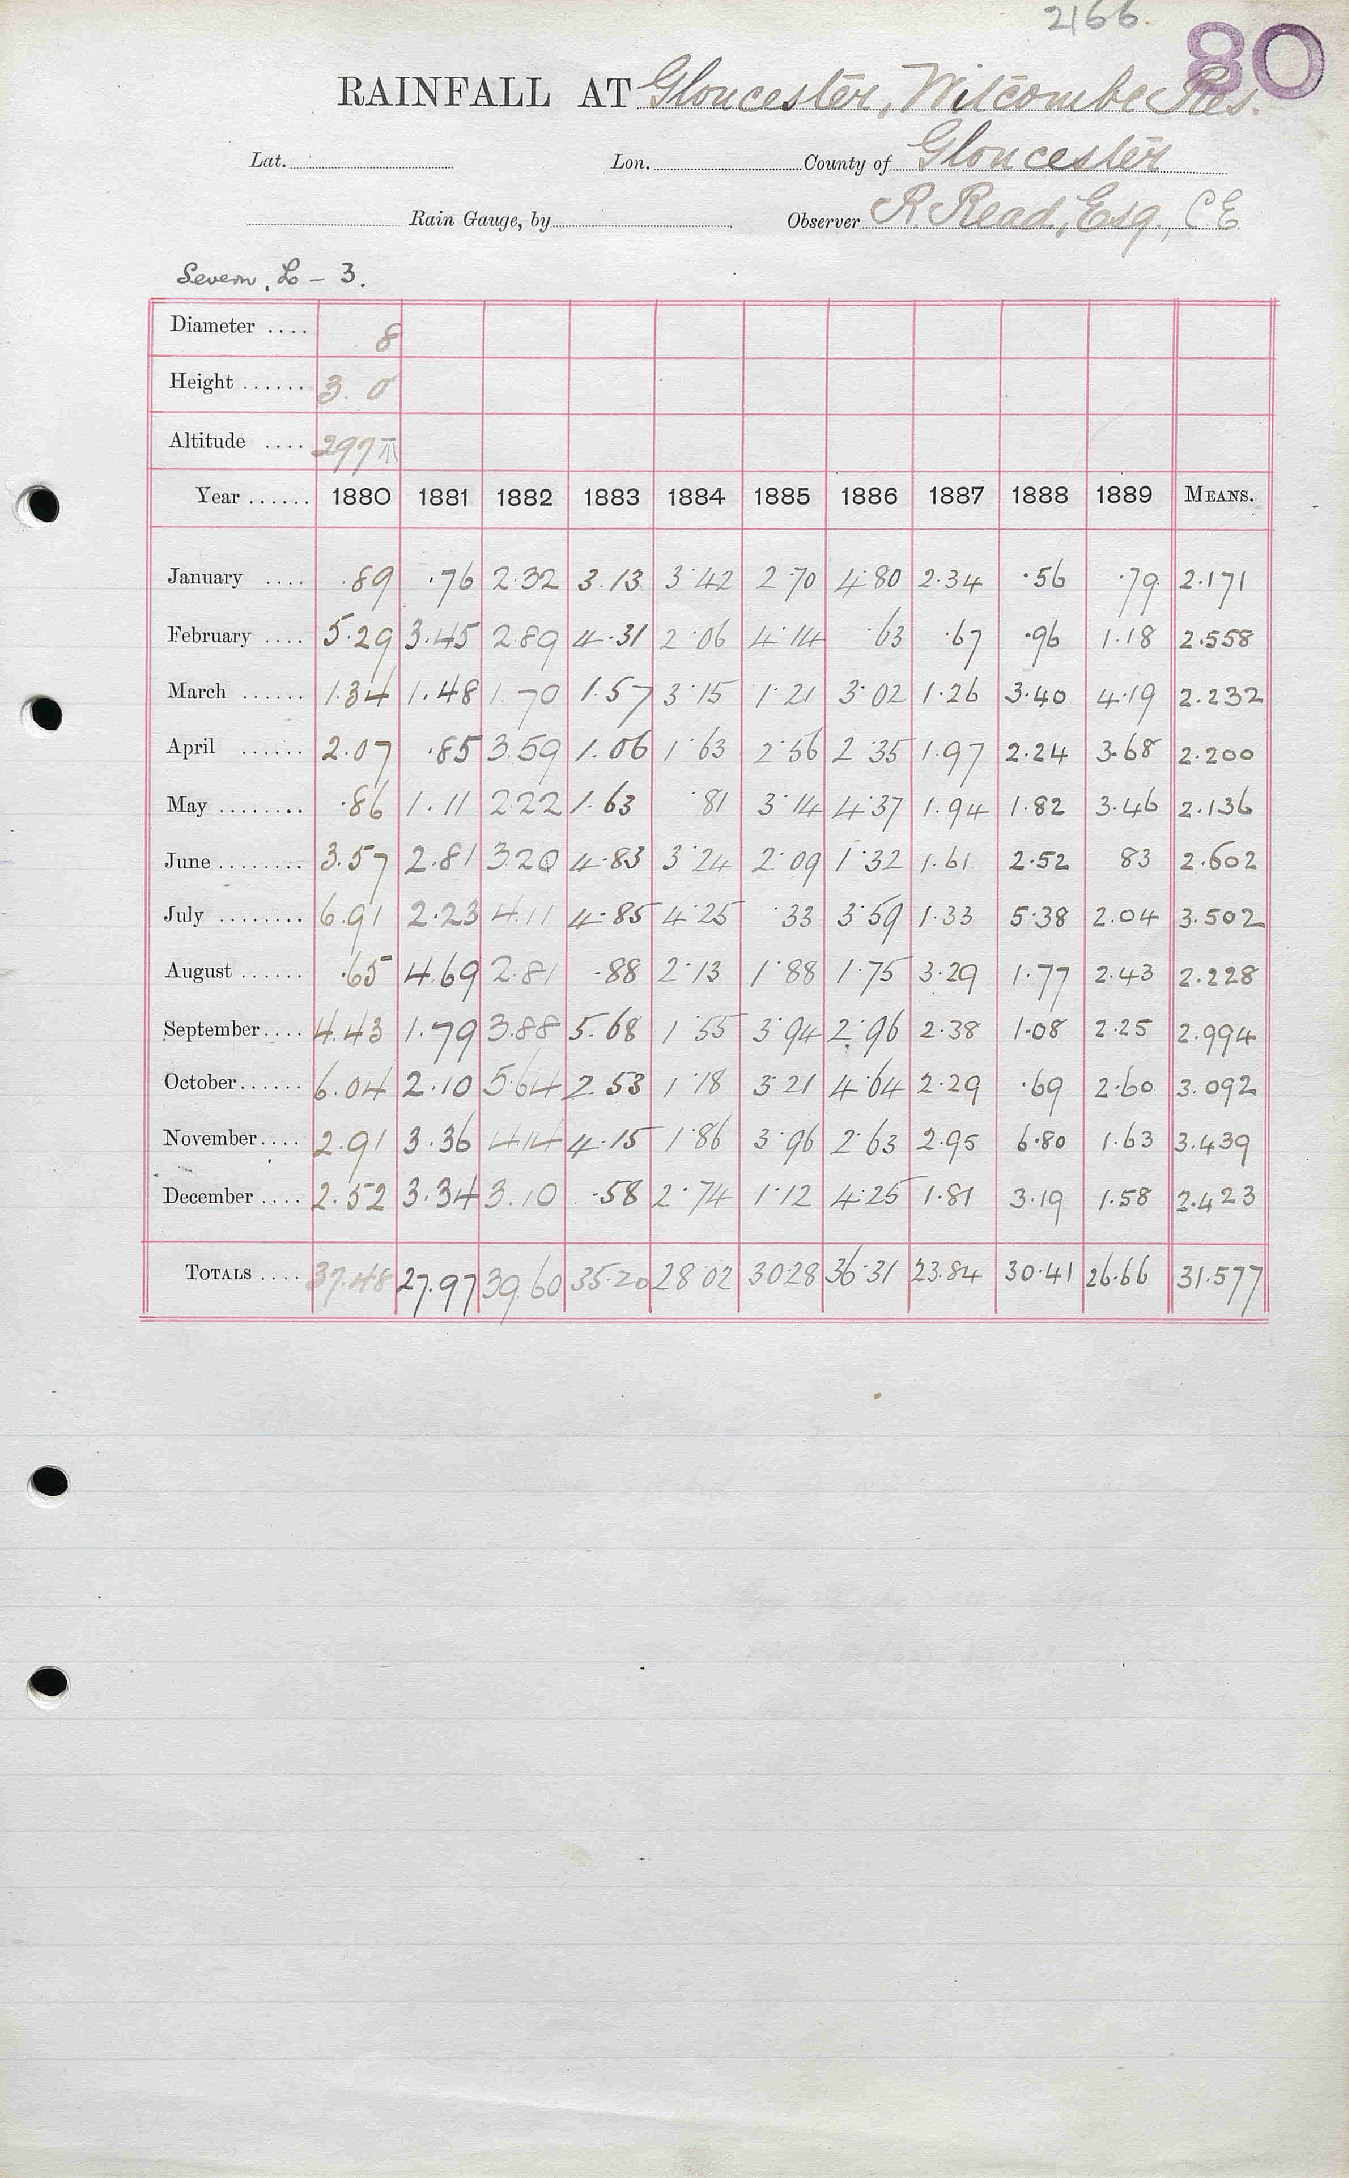 2166.
80
RAINFALL AT Gloucester, Witcombe Res.
Lat. Lon. County of Gloucester
Rain Gauge, by Observer R. Read, Esq., CE
Severn, L - 3.
Diameter .... 8
Height ...... 3. 0
Altitude .... 297
Year ...... 1880 1881 1882 1883 1884 1885 1886 1887 1888 1889 MEANS.
January .... .89 .76 2.32 3.13 3.42 2.70 4.80 2.34 .56 .79 2.171
February .... 5.29 3.45 2.89 4.31 2.06 4.14 .63 .67 .96 1.18 2.558
March ...... 1.34 1.48 1.70 1.57 3.15 1.21 3.02 1.26 3.40 4.19 2.232
April ...... 2.07 .85 3.59 1.06 1.63 2.56 2.35 1.97 2.24 3.68 2.200
May ........ .86 1.11 2.22 1.63 .81 3.14 4.37 1.94 1.82 3.46 2.136
June ........ 3.57 2.81 3.20 4.83 3.24 2.09 1.32 1.61 2.52 83 2.602
July ........ 6.91 2.23 4.11 4.85 4.25 .33 3.59 1.33 5.38 2.04 3.502
August ...... .65 4.69 2.81 .88 2.13 1.88 1.75 3.29 1.77 2.43 2.228
September .... 4.43 1.79 3.88 5.68 1.55 3.94 2.96 2.38 1.08 2.25 2.994
October ...... 6.04 2.10 5.64 2.53 1.18 3.21 4.64 2.29 .69 2.60 3.092
November .... 2.91 3.36 4.14 4.15 1.86 3.96 2.63 2.95 6.80 1.63 3.439
December .... 2.52 3.34 3.10 .58 2.74 1.12 4.25 1.81 3.19 1.58 2.423
TOTALS .... 37.48 27.97 39.60 35.20 28.02 30.28 36.31 23.84 30.41 26.66 31.577